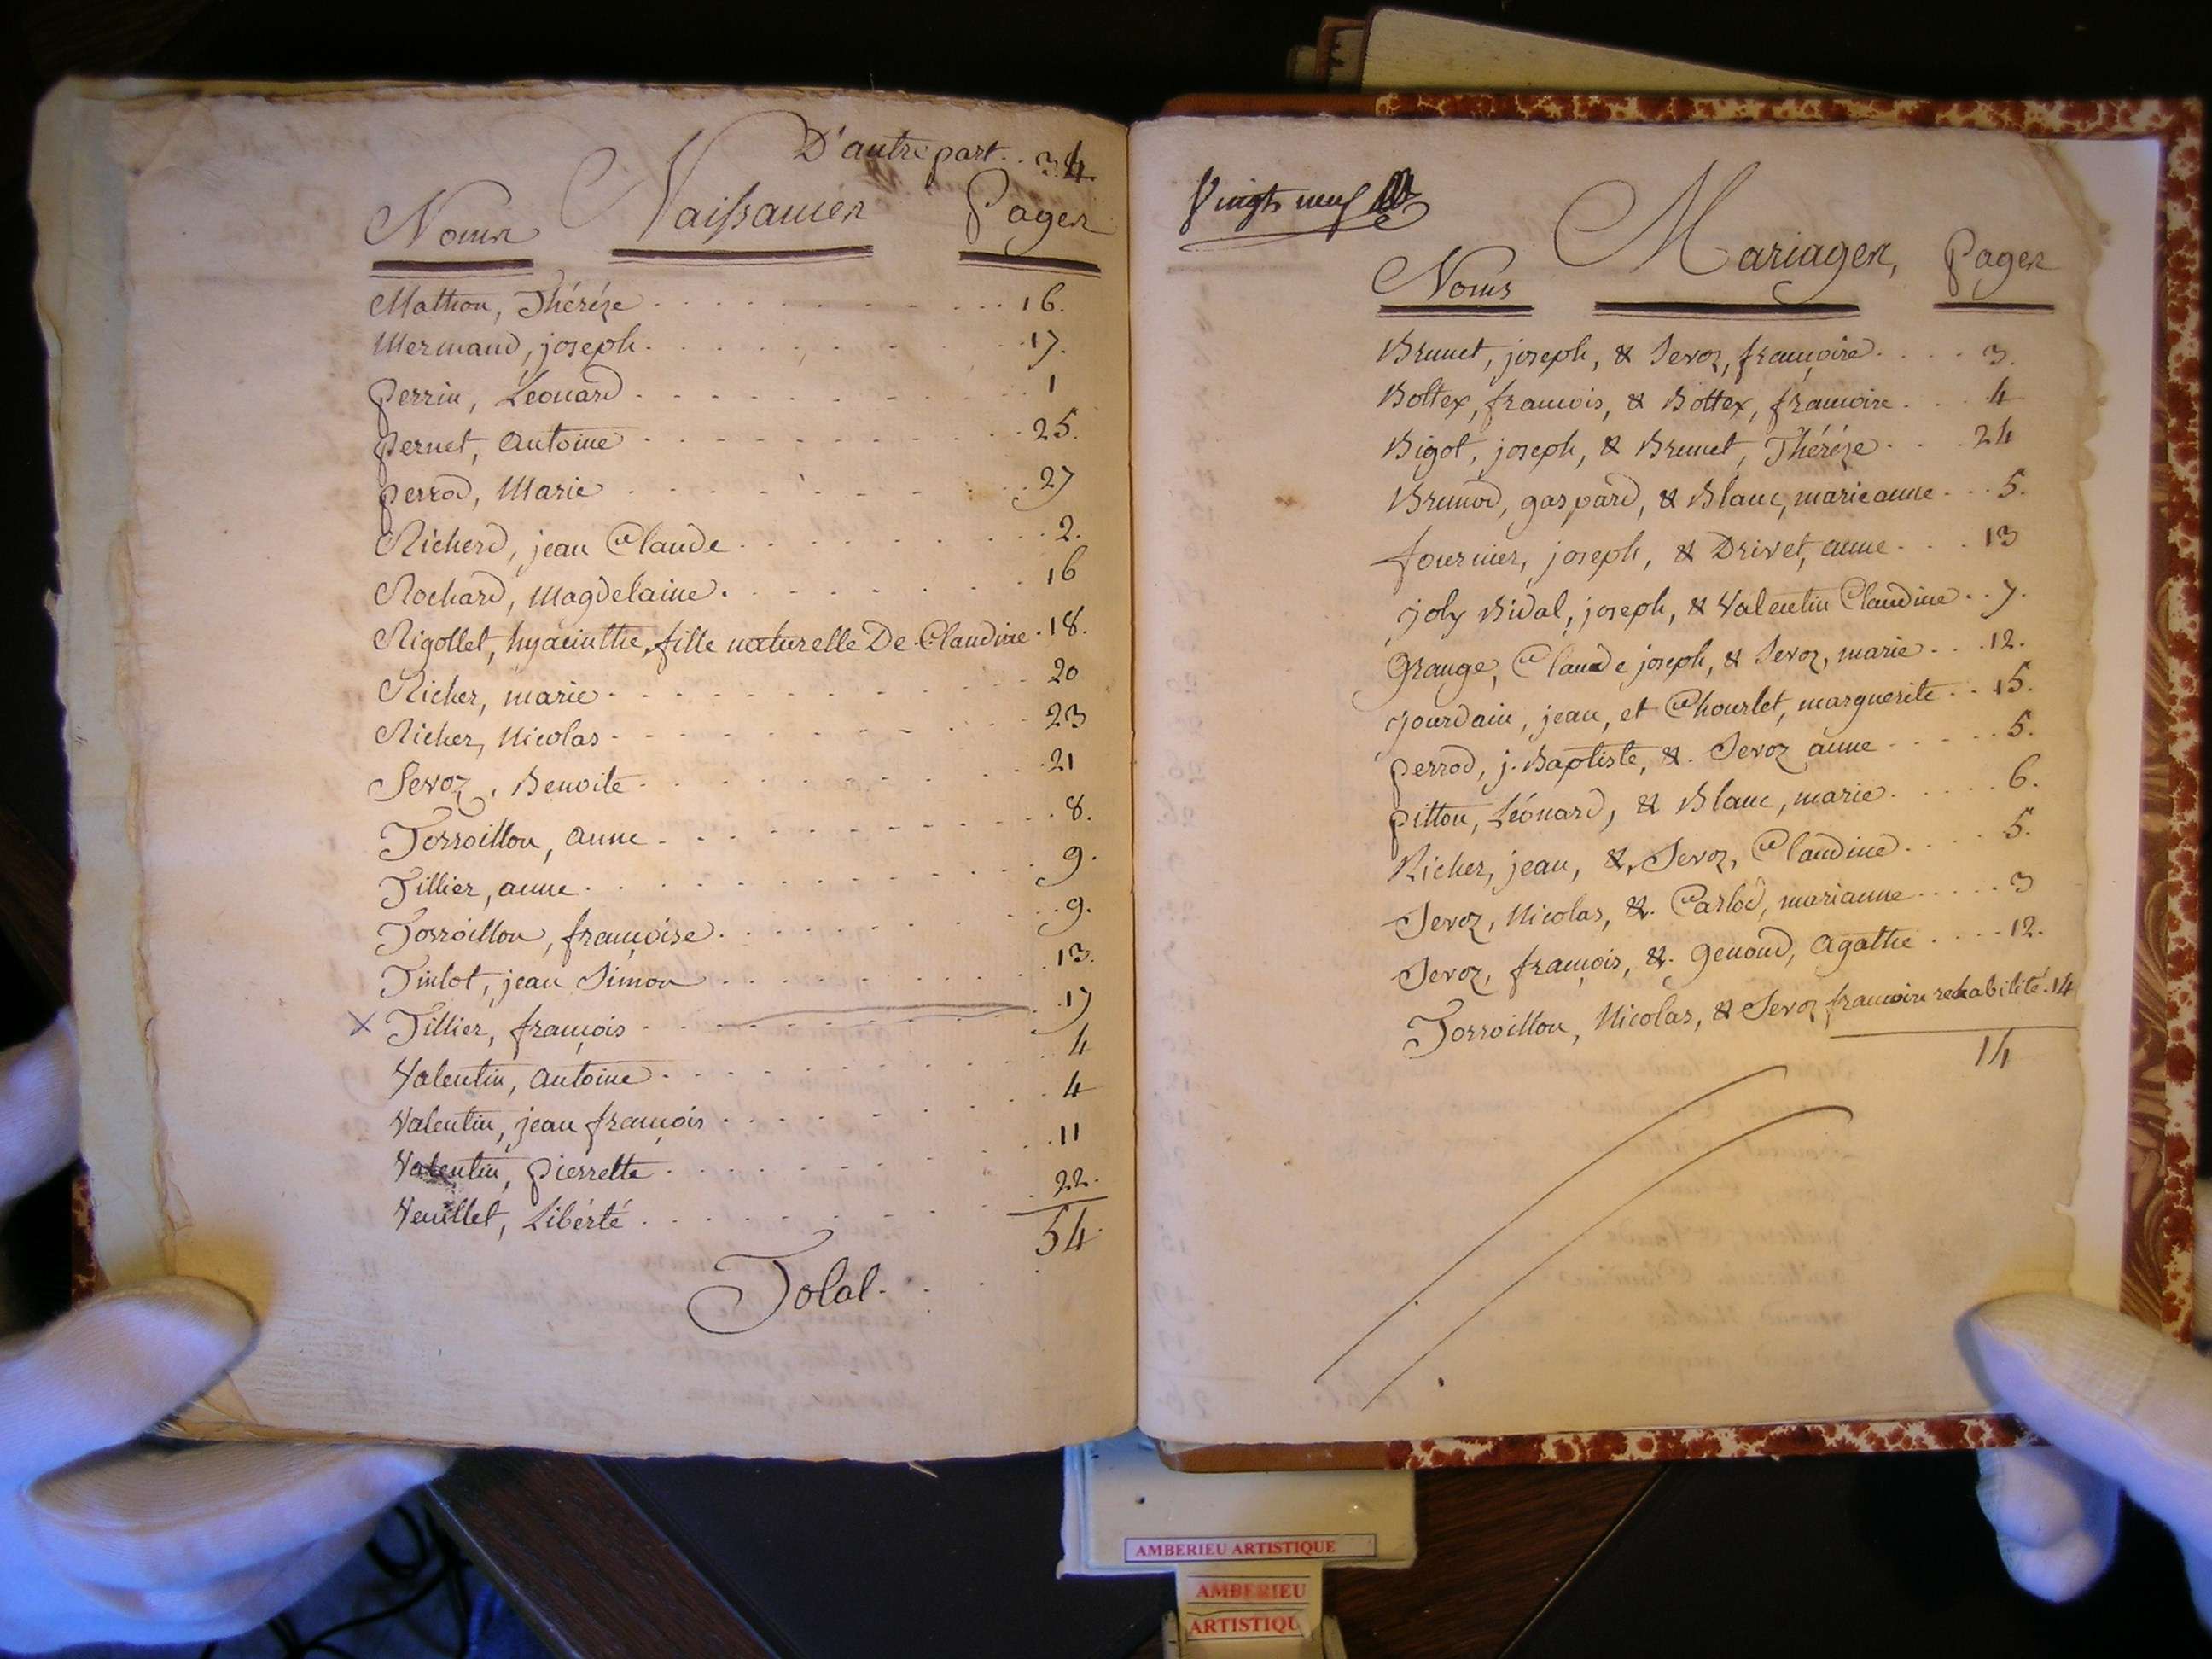 D'autre part.. 34.
Noms Naissances Pages
Mathon, Thérèze 16.
Mermand, joseph. 17.
perrin, Léonard 1
pernet, Antoine 25.
perrod, Marie 27
Richerd, jean Claude 2.
Rochard, Magdelaine. 16
Rigollet, hyacinthe, fille naturelle De Claudine. 18.
Richer, marie 20
Richer, Nicolas 23
Sevoz, Benoite 21
Torroillon, anne 8.
Tillier, anne 9.
Torroillon, françoise 9.
Tinlot, jean Simon 13.
x Tillier, françois 17
Valentin, Antoine 4
Valentin, jean françois 4
Valentin, pierrette 11
Veuillet, Libérté 22.
54.
Total.
Vingt neuf
Noms Mariages, Pages
Brunet, joseph, & Sevoz, françoise 3.
Bottex, francois, & Bottex, francoise 4
Bigot, joseph, & Brunet, Thérèze 24
Brunod, gaspard, & Blanc, marieanne 5.
fournier, joseph, & Drivet, anne 13
joly Bidal, joseph, & Valentin Claudine 7.
Grange, Claude joseph, & Sevoz, marie 12.
jourdain, jean, et Chourlet, marguerite 15.
perrod, j. Baptiste, &. Sevoz anne 5.
pitton, Léonard, & Blanc, marie 6.
Richer, jean, &, Sevoz, Claudine 5.
Sevoz, Nicolas, &. Carlod, marianne 3
Sevoz, françois, &. genoud, Agathe 12.
Torroillon, Nicolas, & Sevoz francoise rehabilité. 14
14
AMBERIEU ARTISTIQUE
AMBERIEU
ARTISTIQU